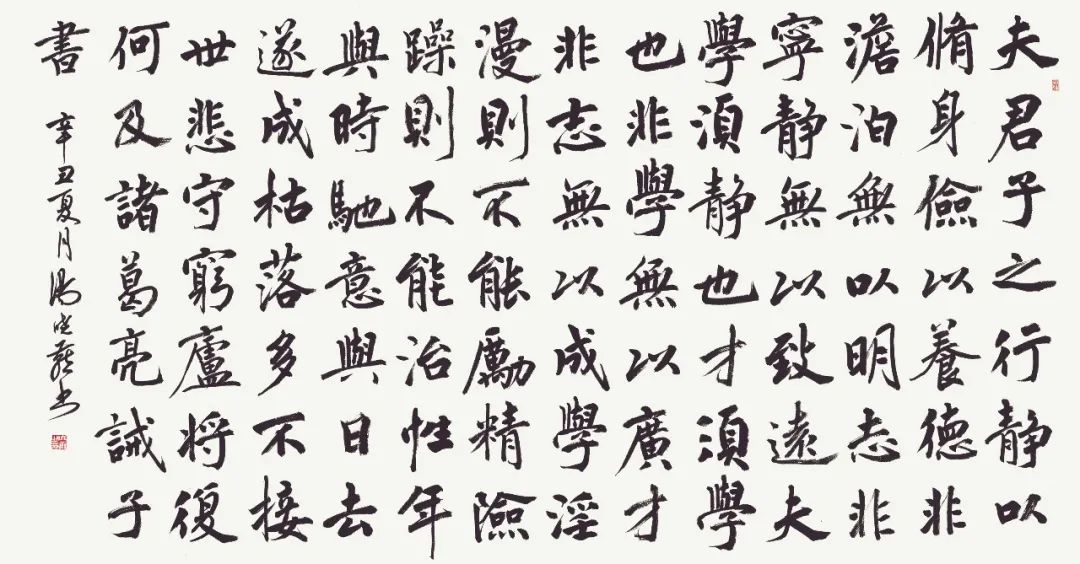 夫君子之行静以
脩身儉以養德非
澹泊無以明志非
寧静無以致遠夫
學須静也才須學
也非學無以廣才
非志無以成學淫
漫則不能勵精險
躁則不能治性年
與時馳意與日去
遂成枯落多不接
世悲守窮廬将復
何及諸葛亮誡子
書
辛丑夏月